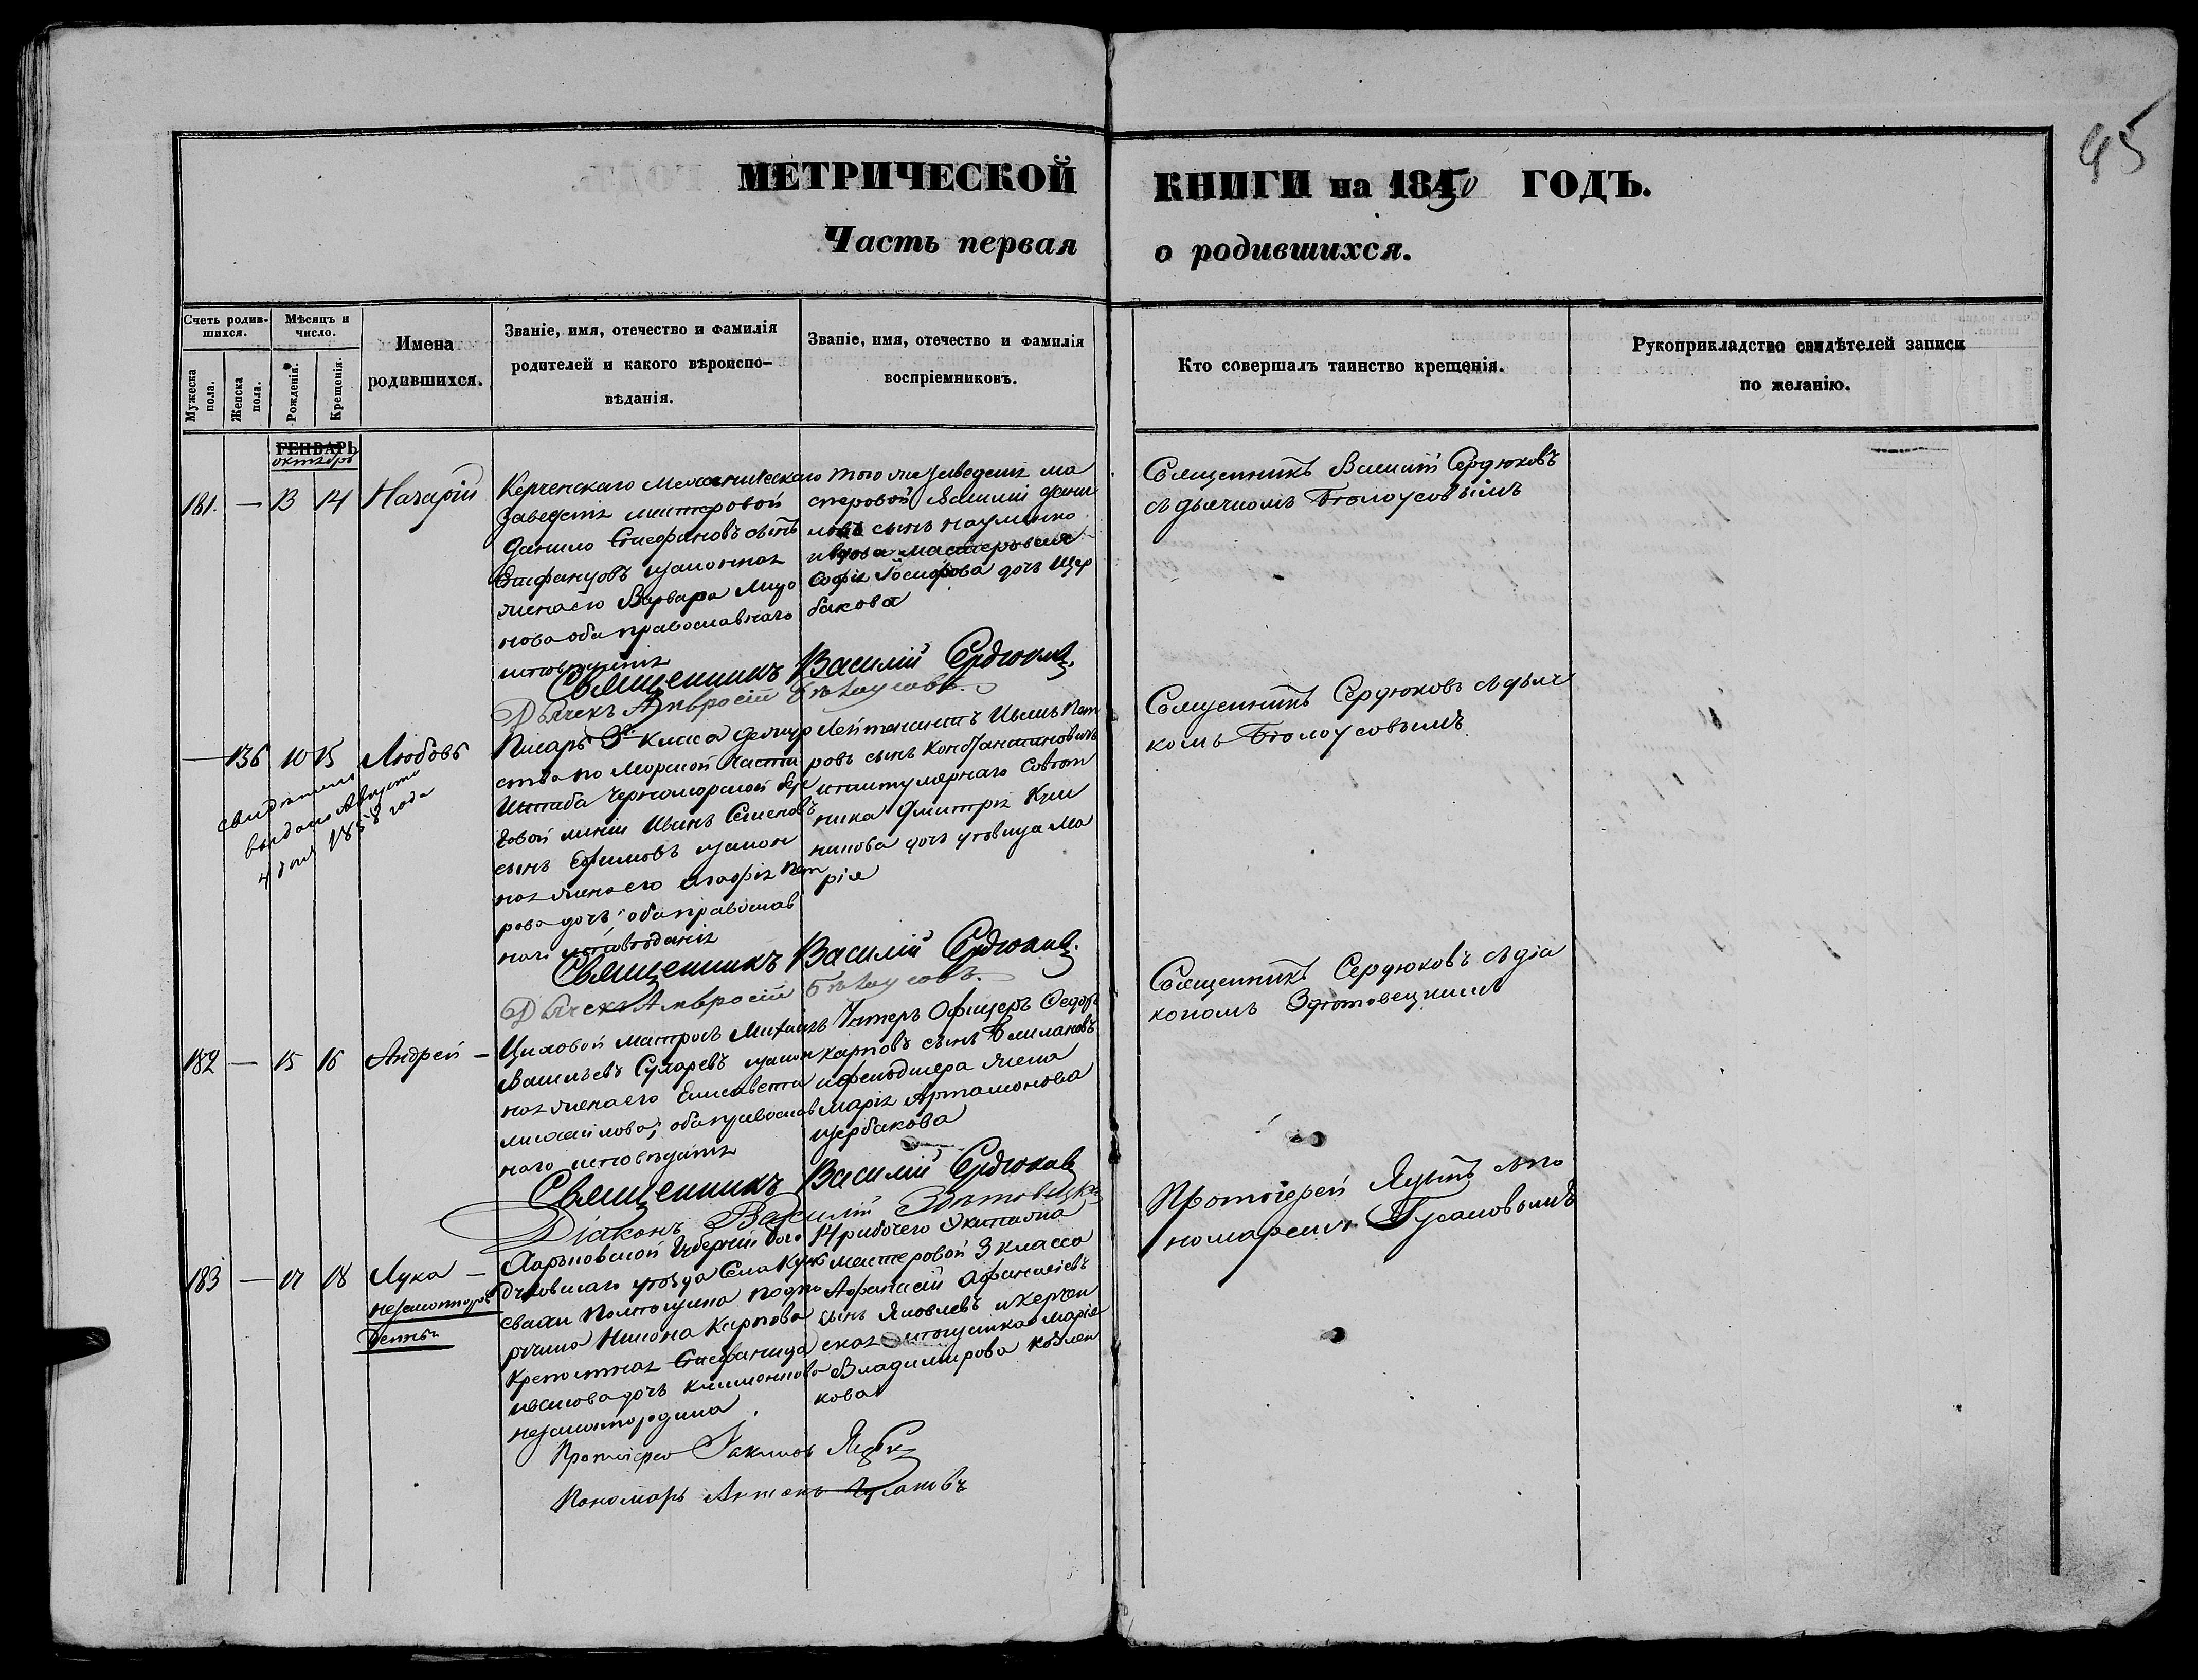 45
МЕТРИЧЕСКОЙ КНИГИ на 1850 ГОДЪ.
Часть первая о родившихся.
Счетъ родив-
шихся.
Мужеска пола.
Женска пола.
Мѣсяцъ и
число.
Рожденія.
Крещенія.
Имена
родившихся.
Званіе, имя, отечество и фамилія
родителей и какого вѣроиспо-
вѣданія.
Званіе, имя, отечество и фамилія
воспріемниковъ.
Кто совершалъ таинство крещенія.
Рукоприкладство свидѣтелей записи
по желанію.
ГЕНВАРЬ
октябрь
181. — 13 14 Назарій
Керченскаго Механическаго
Заведенія мастеровой
Данило Стефановъ сынъ
Епифанцовъ и законная
жена его Варвара
нова оба православнаго
исповѣданія
того же Заведенія ма
стеровой Василій Дани
ловъ сынъ Науменко
и вдова мастеровая
Софія Іосифова дочь Щер
бакова
Священникъ Василій Сердюковъ
съ дьячкомъ Бѣлоусовымъ
Священникъ Василій Сердюковъ
Дьячекъ Амвросій Бѣлоусовъ.
— 136 10 15 Любовь
свидѣтельство
выдано Августа
4 дня 1858 года
Писарь 3го класса Дежур
ства по Морской части
Штаба Черноморской бере
говой линіи Иванъ Семеновъ
сынъ Ефимовъ и закон
ная жена его Агафія Пет
рова дочь; оба православ
наго исповѣданія
Лейтенантъ Иванъ Пет
ровъ сынъ Константиновичъ
и титулярнаго Совѣт
ника Дмитрія Кум
нинова дочь дѣвица Ма
рія
Священникъ Сердюковъ съ дьяч
комъ Бѣлоусовымъ
Священникъ Василій Сердюковъ.
Дьячекъ Амвросій Бѣлоусовъ.
182 — 15 16 Андрей —
Цыловой матросъ Михаилъ
Васильевъ Сухаревъ и закон
ная жена его Елисавета
Михайлова; оба православ
наго исповѣданія
Унтеръ Офицеръ Федоръ
Карповъ сынъ
и фельдшера жена
Марія Артамонова
Щербакова
Священникъ Сердюковъ съ діа
кономъ Здѣтовецкимъ
Священникъ Василій Сердюковъ
Діаконъ Василій Здѣтовецкій
183 — 17 18 Лука —
незаконнорож
денный
Харьковской Губерніи Бого
духовскаго уѣзда Села
Никона Карпова
Крепостная Стефанида
дочь
незаконнорождена.
14 рабочего Экипажа
мастеровой 3 класса
Афанасій Афанасьевъ
сынъ Яковлевъ и Керчен
ская Марія
Владимирова Козлен
кова
Протоіерей Яцынъ съ по
номаремъ Гусаковымъ
Протоіерей Іоакимъ Яцынъ
Пономарь Антонъ Гусаковъ